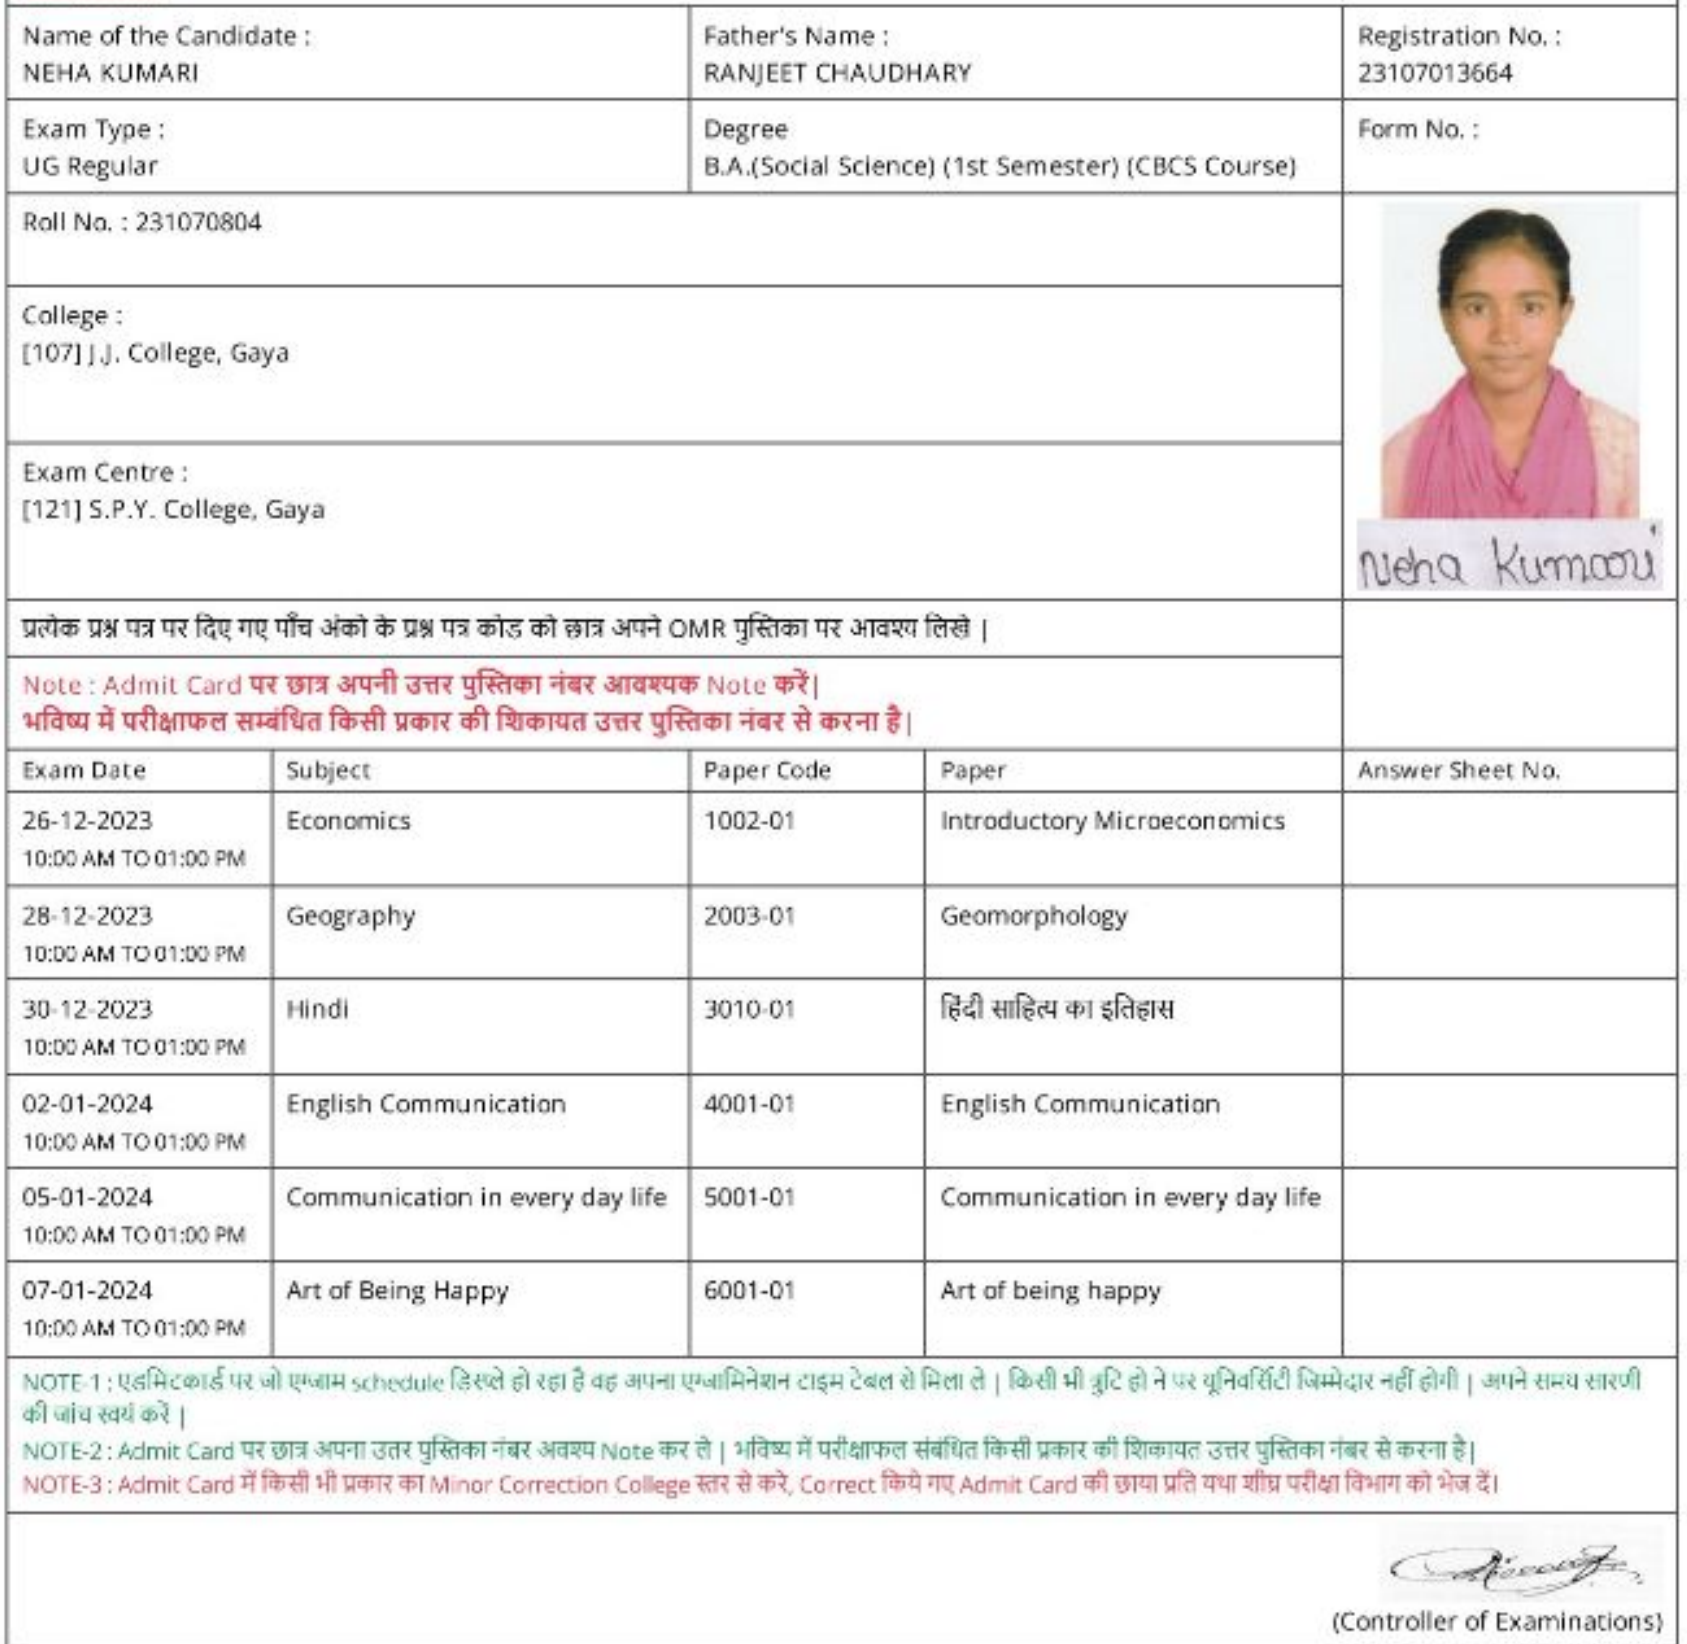 Name of the Candidate :
NEHA KUMARI
Father's Name :
RANJEET CHAUDHARY
Registration No. :
23107013664
Exam Type :
UG Regular
Degree
B.A.(Social Science) (1st Semester) (CBCS Course)
Form No. :
Roll No. : 231070804
College :
[107] J.J. College, Gaya
Exam Centre :
[121] S.P.Y. College, Gaya
Neha Kumari
प्रत्येक प्रश्न पत्र पर दिए गए पाँच अंको के प्रश्न पत्र कोड को छात्र अपने OMR पुस्तिका पर आवश्य लिखे |
Note : Admit Card पर छात्र अपनी उत्तर पुस्तिका नंबर आवश्यक Note करें|
भविष्य में परीक्षाफल सम्बंधित किसी प्रकार की शिकायत उत्तर पुस्तिका नंबर से करना है|
Exam Date Subject Paper Code Paper Answer Sheet No.
26-12-2023 Economics 1002-01 Introductory Microeconomics
10:00 AM TO 01:00 PM
28-12-2023 Geography 2003-01 Geomorphology
10:00 AM TO 01:00 PM
30-12-2023 Hindi 3010-01 हिंदी साहित्य का इतिहास
10:00 AM TO 01:00 PM
02-01-2024 English Communication 4001-01 English Communication
10:00 AM TO 01:00 PM
05-01-2024 Communication in every day life 5001-01 Communication in every day life
10:00 AM TO 01:00 PM
07-01-2024 Art of Being Happy 6001-01 Art of being happy
10:00 AM TO 01:00 PM
NOTE-1 : एडमिटकार्ड पर जो एग्जाम schedule डिस्प्ले हो रहा है वह अपना एग्जामिनेशन टाइम टेबल से मिला ले | किसी भी त्रुटि हो ने पर यूनिवर्सिटी जिम्मेदार नहीं होगी | अपने समय सारणी
की जांच स्वयं करें |
NOTE-2 : Admit Card पर छात्र अपना उतर पुस्तिका नंबर अवश्य Note कर ले | भविष्य में परीक्षाफल संबंधित किसी प्रकार की शिकायत उत्तर पुस्तिका नंबर से करना है|
NOTE-3 : Admit Card में किसी भी प्रकार का Minor Correction College स्तर से करे, Correct किये गए Admit Card की छाया प्रति यथा शीघ्र परीक्षा विभाग को भेज दें।
(Controller of Examinations)